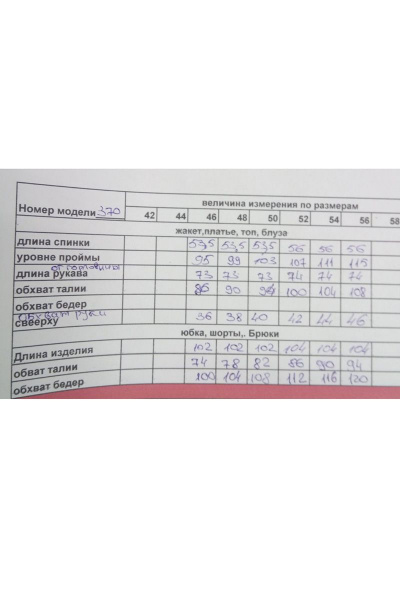 величина измерения по размерам
Номер модели 370 42 44 46 48 50 52 54 56 58
жакет,платье, топ, блуза
длина спинки 53,5 53,5 53,5 56 56 56
уровне проймы 95 99 103 107 111 115
длина рукава 73 73 73 74 74 74
обхват талии 86 90 94 100 104 108
обхват бедер
обхват руки
свеерху 36 38 40 42 44 46
юбка, шорты,. Брюки
Длина изделия 102 102 102 104 104 104
обват талии 74 78 82 86 90 94
обхват бедер 100 104 108 112 116 120